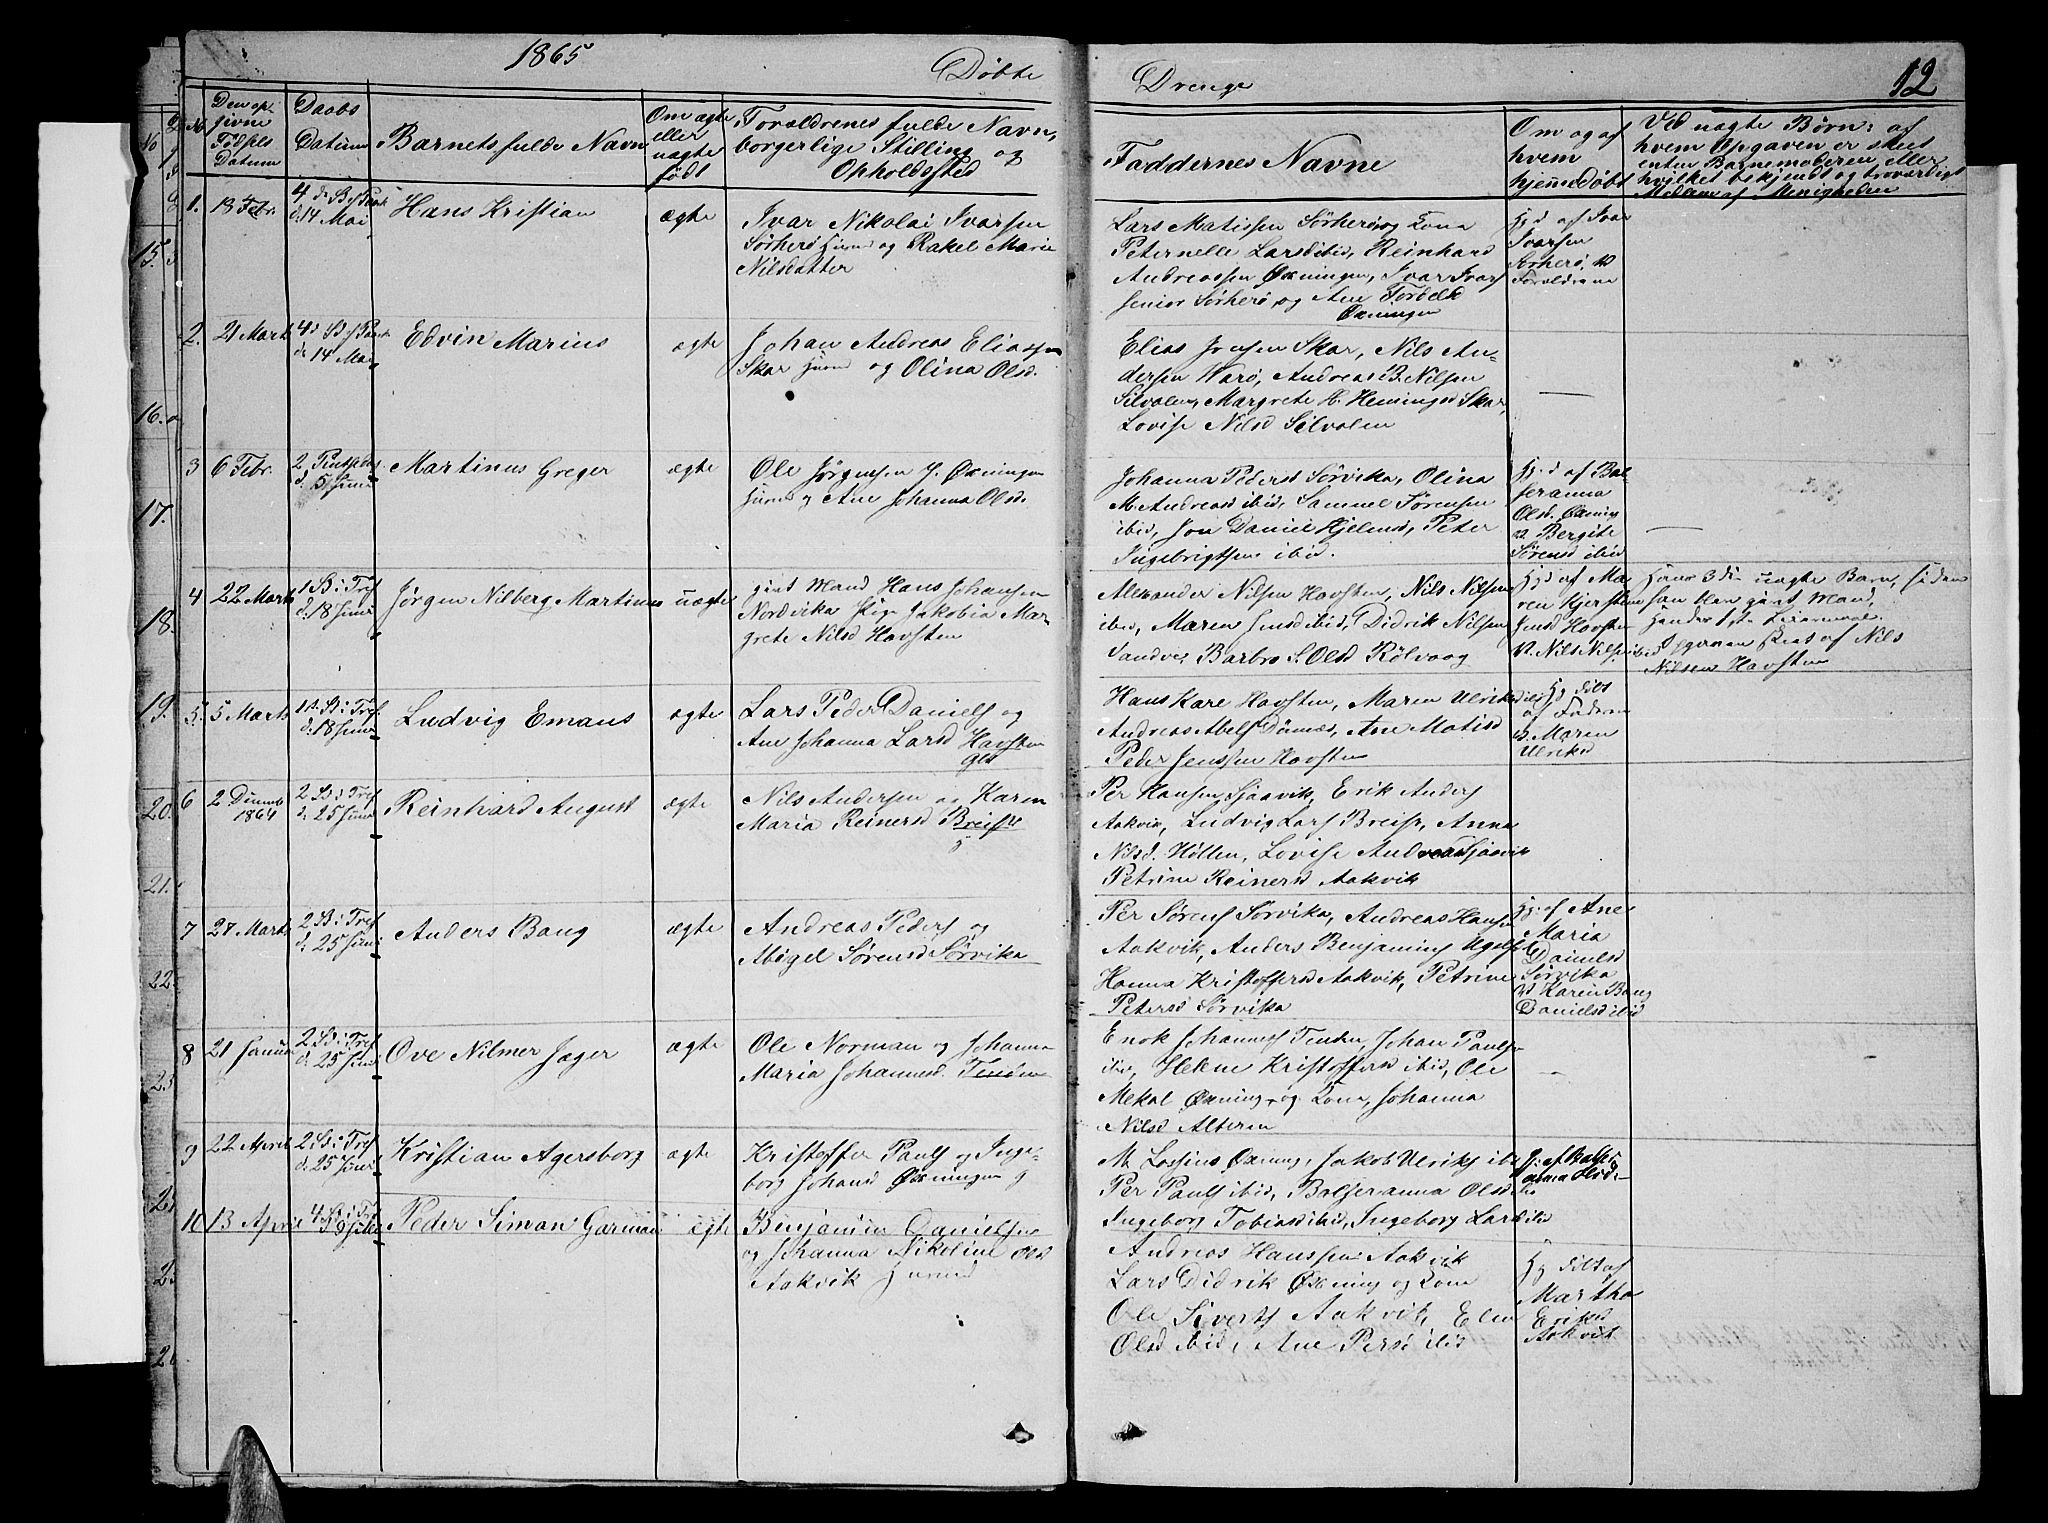 1865
Døbte
Drenge
12
No
Den op-
givne
Fødsels
Datum
Daabs
Datum
Barnets fulde Navn
Om ægte
eller
uægte
født
Forældrenes fulde Navn,
borgerlige Stilling og
Opholdssted
Faddernes Navne
Om og af
hvem
hjemmedøbt
Ved uægte Børn: af
hvem Opgaven er skeet
enten Barnemoderen eller
hvilket bekjendt og troværdigt
Medlem af Menigheden
1.
18 Febr.
14 Mai
Hans Kristian
ægte
Ivar Nikolai Ivarsen
Sørherø Huusmd og Rakel Marie
Nilsdatter
Lars Matissen Sørherø, og Kona
Peternelle Larsd ibid, Reinhard
Andreassen Øxningen, Ivar Ivars
senior Sørherø, og Ane Torbek
Øxningen
Hj d af Ivar
Ivarsen
Sørherø,
Forældrene
2.
21 Marts
14 Mai
Edvin Marius
ægte
Johan Andreas Eliassen
Skar Huusmd og Olina Olsd.
Elias Jensen Skar, Nils An-
dersen Warø, Andreas B. Nilsen
Silvalen, Margrete H. Hemingsd Skar,
Lovise Nilsd Silvalen
3
6 Febr.
2 Pintsedag
d. 5 Juni
Martinus Greger
ægte
Ole Jørgensen Øxningen
og Ane Johanna Olsd.
Johanna Pedersd Sørvika, Olina
M. Andreasd ibid, Samuel Sørensen
ibid, Jon Daniel Hjelmsd, Peter
Ingebrigtsen ibid.
Hj. d af Bal-
seranna
Olsd. Øxning
Bergite
Sørensd ibid
4
22 Marts
1 S. i Tref
d. 18 Juni
Jørgen Nilberg Martinus
uægte
gift Mand Hans Johansen
Nordvika Pige Jakobia Mar-
grete Nilsd Havsten
Alexander Nilsen Havsten, Nils Nilsen
ibid, Maren Jensd ibid, Didrik Nilsen
Sandve, Barbro S. Olsd Rølvaag
Hj d af Ma-
ren Kjerstine
Jensd Havsten
Nils Nilsen ibid
Hans 3die uægte Barn, siden
han blev gift Mand,
Hendes 1ste Leiermaal.
Opgaven skeet af Nils
Nilsen Havsten
5.
5 Marts
1 S. i Tref.
d. 18 Juni
Ludvig Emaus
ægte
Lars Peder Daniels og
Ane Johanna Larsd Havsten
Hans Kare Havsten, Maren Ulriksd ibid
Andreas Abels Dønnæs, Ane Matisd
Peder Jenssen Havsten
Hj. dbt
af Faderen
Maren
Ulriksd
6
2 Decemb
1864
2 S. i Tref
d. 25 Juni
Reinhard August
ægte
Nils Andersen og Karen
Maria Reinersd
Per Hansen Sjaavik, Erik Anders
Aakvik, Ludvig Lars, Anna
Nilsd. Høllen, Lovise Andreasd Sjaavik
Petrine Reinersd Aakvik
7
27 Marts
2 S. i Tref
d. 25 Juni
Anders Bang
ægte
Andreas Peders og
Abigel Sørensd Sørvika
Per Sørens Sørvika, Andreas Hansen
Aakvik, Anders Benjamins
Hanna Kristoffersd Aakvik, Petrine
Petersd Sørvika
Hj. af Ane
Maria
Danielsd
Sørvika
Karen Bang
Danielsd ibid
8
21 Januar
2 S. i Tref
d. 25 Juni
Ove Nilmer Jæger
ægte
Ole Norman og Johanna
Maria Johannesd.
Enok Johannes, Johan Pauls
ibid, Helene Kristoffersd ibid, Ole
Mekal Øxning, og Kona, Johanna
Nilsd Alteren
9
22 April
2 S. i Tref
d. 25 Juni
Kristian Agersborg
ægte
Kristoffer Pauls og Inge-
borg Johansd Øxningen
M. Lassius Øxning, Jakob Ulriks ibid
Per Pauls ibid, Balseranna Olsd ibid
Ingeborg Tobiasd ibid, Ingeborg Larsd ibid
Hj. af Balser-
anna Olsd.
10
13 April
4 S. i Tref
Peder Simon Garman
ægte
Benjamin Danielsen
og Johanna Nikoline Olsd
Aakvik
Andreas Hanssen Aakvik
Lars Didrik Øxning og Kona
Ole Siverts Aakvik, Elen
Olsd ibid, Ane Persd ibid
Hj dbt af
Martha
Eriksd
Aakvik
15.
16.
17.
18.
19.
20.
21.
22.
23